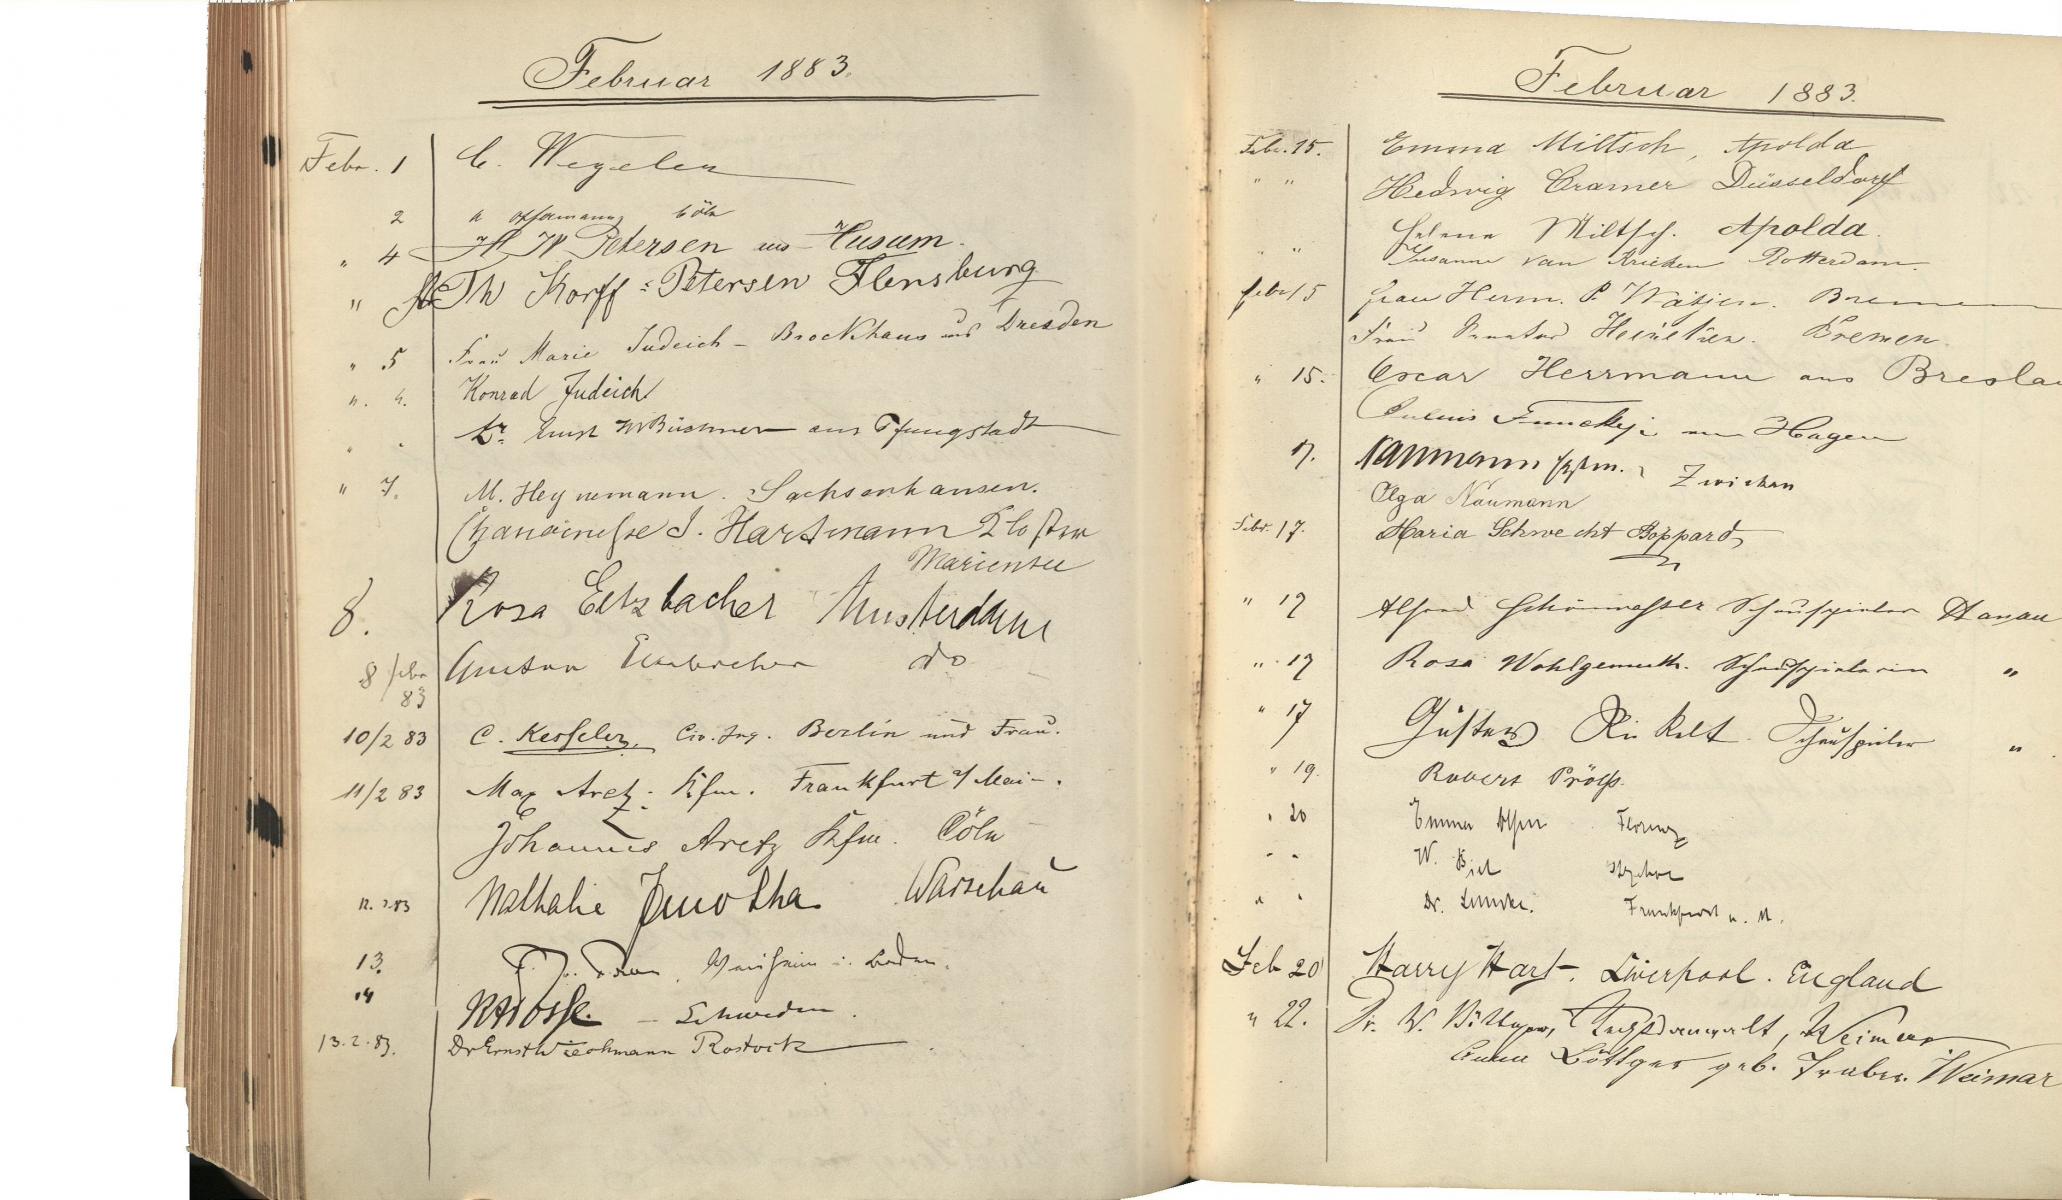 Februar 1883.
Febr. 1 C. Wegelen
2 Cöln
" 4 H W Petersen aus Husum.
" Th Korff-Petersen Flensburg
" 5 Frau Marie Judeich-Brockhaus aus Dresden
Konrad Judeich
Dr. Ernst Büchner aus Pfungstadt
" 7. M. Heynemann. Sachsenhausen.
J. Hartmann Kloster
Mariensee
8. Rosa Eltzbacher Amsterdam
8 febr Gustav Eltzbacher do
83
10/2 83 C. Kesseler, Civ. Ing. Berlin und Frau.
11/2 83 Max Aretz. Kfm. Frankfurt a/ Main.
Johannes Aretz Kfm. Cöln
12.2.83 Nathalie Janotha Warschau
13. i. Baden.
14 – Schweden.
13.2.83. Dr Ernst Wiechmann Rostock
Februar 1883.
Febr. 15. Emma Miltsch, Apolda
" " Hedwig Cramer Düsseldorf
Helene Miltsch. Apolda.
" Susanne van Rotterdam.
febr 15 Frau Herm. P. Wätjen. Bremen
Frau Senator Heineken. Bremen.
" 15. Oscar Herrmann aus Breslau
Julius Funcke aus Hagen
17. Naumann Zwickau
Olga Naumann
Febr. 17. Maria Schwecht Boppard
" 17 Alfred Schönmesser Schauspieler Hanau
" 17 Rosa Wohlgemuth. Schauspielerin "
" 17 Gustav Rickelt Schauspieler "
" 19. Robert Prölß.
" 20 Emma Florenz
" " W.
" " Dr. Frankfurt a. M.
Feb 20 Harry Hart. Liverpool. England
" 22. Dr. W. Böttger, Rechtsanwalt, Weimar
Anna Böttger geb. Weimar